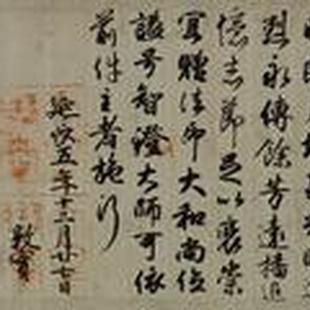 烈永傳餘芳遠播追
憶志節足以褒崇
宜贈法印大和尚位
謚号智澄大師可依
前件主者施行
延長五年十二月廿七日
敦實